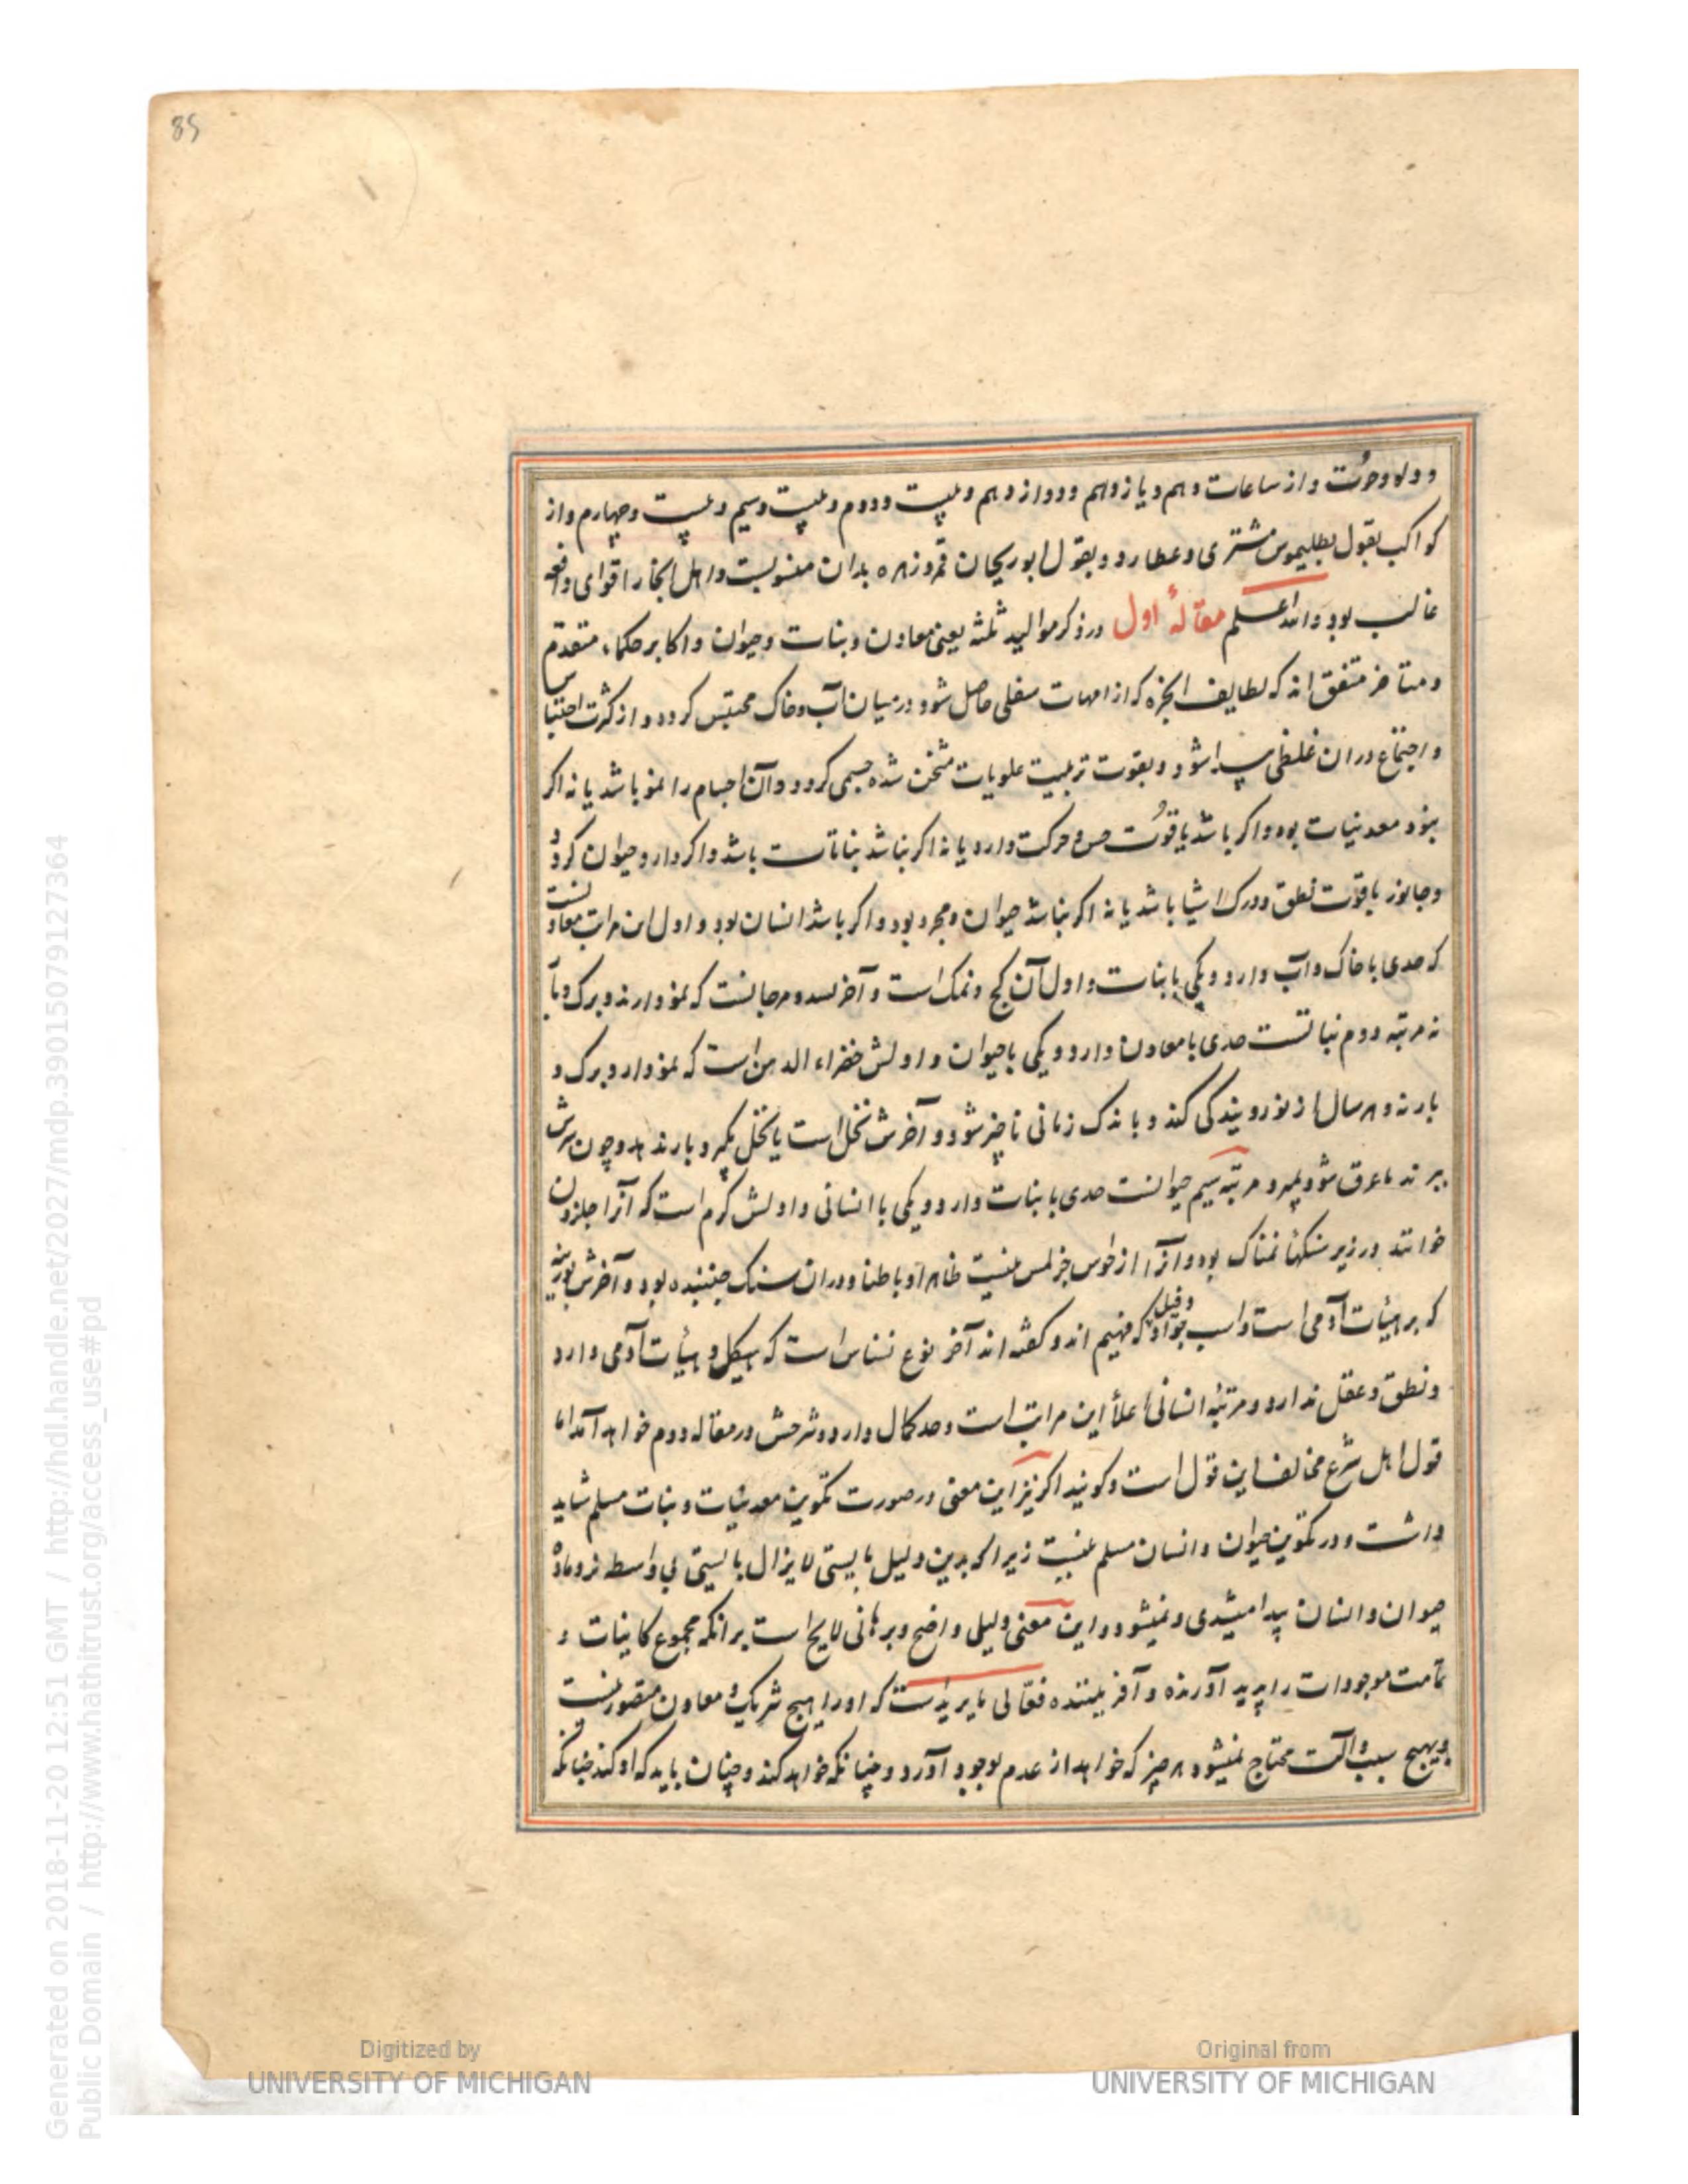 85
و دلو و حوت و از ساعات دهم و یازدهم و دوازدهم و بیست و دوم و بیست و سیم و بیست و چهارم و از
کواکب بقول بطلیموس مشتری و عطارد و بقول ابوریحان قمر و زهره بدان منسوبست و اهل انجا را قوای دافعه
غالب بود والله اعلم مقالهٔ اول در ذکر موالید ثلثه یعنی معادن و نبات و حیوان و اکابر حکماء متقدم
و متاخر متفق اند که لطایف ابخره که از امهات سفلی حاصل شود در میان آب و خاک محتبس کردد و از کثرت احتباس
و اجتماع در ان غلظی پیدا شود و بقوت تربیت علویات متخن شده جسمی کردد و آن اجسام را نمو باشد یا نه اکر
نبود معدنیات بود و اکر باشد یا قوت حس و حرکت دارد یا نه اکر نباشد نباتات باشد و اکر دارد حیوان کردد
و جانور یا قوت نطق و درک اشیا باشد یا نه اکر نباشد حیوان مجرد بود و اکر باشد انسان بود و اول این مراتب معادنست
که حدی با خاک و آب دارد و یکی با نبات و اول آن کج و نمک است و آخر بسد و مرجانست که نمو دارند و برک و بار
نه مرتبه دوم نباتست حدی با معادن دارد و یکی با حیوان و اولش خضراء الدمن است که نمو دارد و برک و
بار نه و هر سال از نو رویندکی کند و باندک زمانی ناچیز شود و آخرش نخل است یا نخل نکیرد بار ندهد و چون سرش
ببرند یا غرق شود بمیرد مرتبه سیم حیوانست حدی با نبات دارد و یکی با انسانی و اولش کرم است که آنرا حلزون
خوانند در زیر سنکها نمناک بود و آنرا از حواس جز لمس نیست ظاهرا و باطنا و در ان سنک جنبنده بود و آخرش بوزینه
که بر هیئات آدمی است و اسب جواد و فیل که فهیم اند و کفته اند آخر نوع نسناس است که هیکل و هیئات آدمی دارد
و نطق و عقل ندارد و مرتبهٔ انسانی اعلأ این مراتب است و حد کمال دارد و شرحش در مقاله دوم خواهد آمد اما
قول اهل شرع مخالف این قول است و کویند اکر نیز این معنی در صورت تکوین معدنیات و نبات مسلم شاید
داشت و در تکوین حیوان و انسان مسلم نیست زیرا که بدین دلیل بایستی لا یزال بایستی بی واسطه نر و ماده
حیوان و انسان پیدا میشدی و نمیشود و این معنی دلیلی واضح و برهانی لایح است بر انکه مجموع کاینات و
تمامت موجودات را پدید آورنده و آفریننده فعالی مایریدست که او را هیچ شریک و معاون متصور نیست
و بهیچ سبب و آلت محتاج نمیشود هر چیز که خواهد از عدم بوجود آورد و چنانکه خواهد کند و چنان باید که او کند چنانکه
Generated on 2018-11-20 12:51 GMT / http://hdl.handle.net/2027/mdp.39015079127364
Public Domain / http://www.hathitrust.org/access_use#pd
Digitized by
UNIVERSITY OF MICHIGAN
Original from
UNIVERSITY OF MICHIGAN